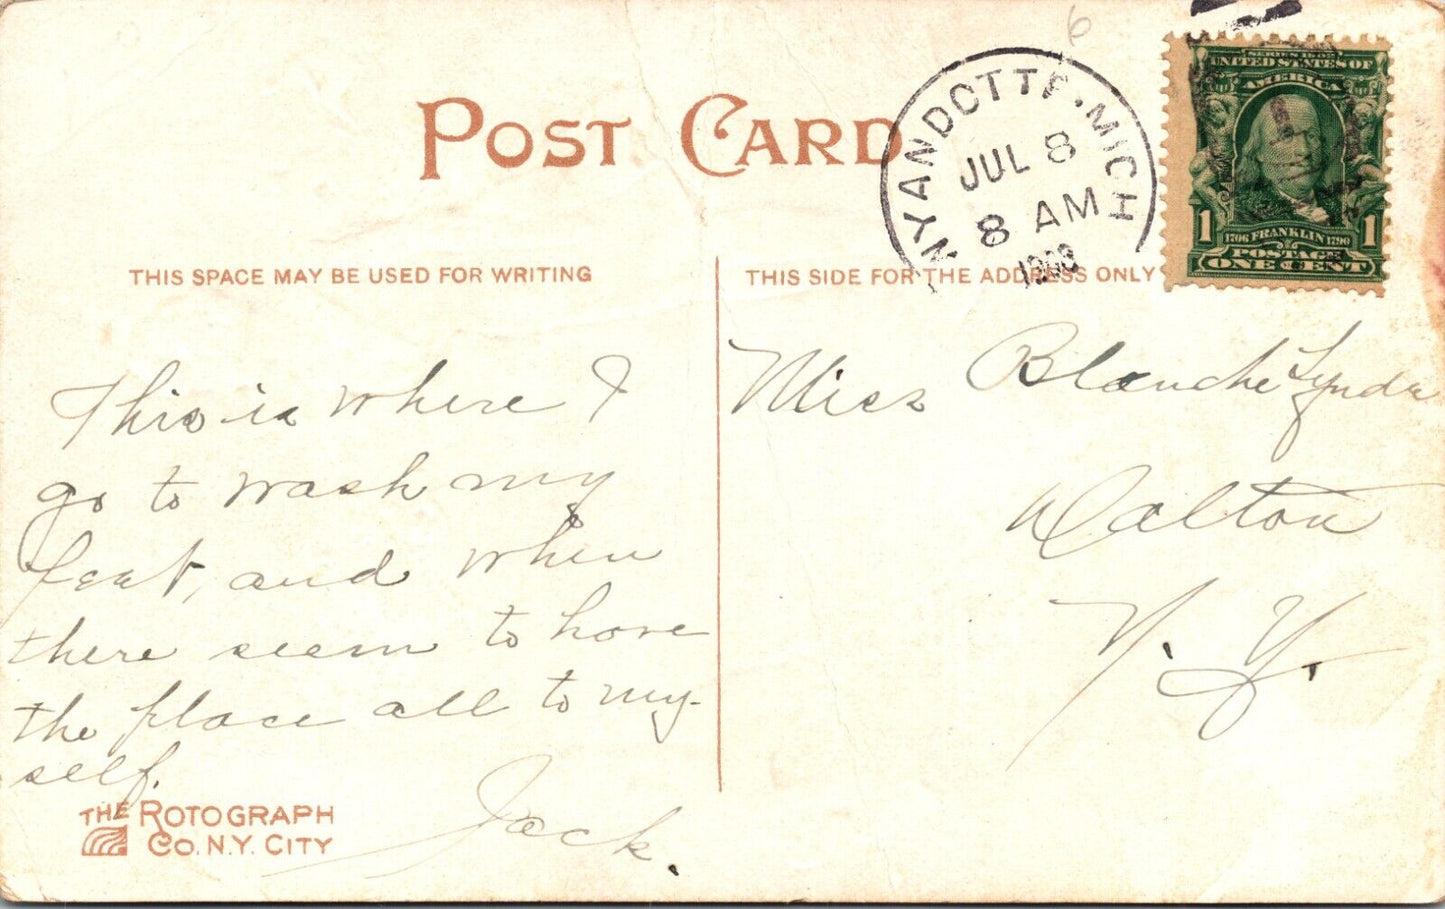 POST CARD
WYANDOTTE, MICH
JUL 8
8 AM
SERIES 1902
UNITED STATES OF
AMERICA
1 1
1706 FRANKLIN 1790
POSTAGE
ONE CENT
6
THIS SPACE MAY BE USED FOR WRITING
THIS SIDE FOR THE ADDRESS ONLY
This is where I
go to wash my
feet, and when
there seem to have
the place all to my-
self.
Jack.
Miss Blanche Lynde
Dalton
N. Y.
THE ROTOGRAPH
CO. N.Y. CITY